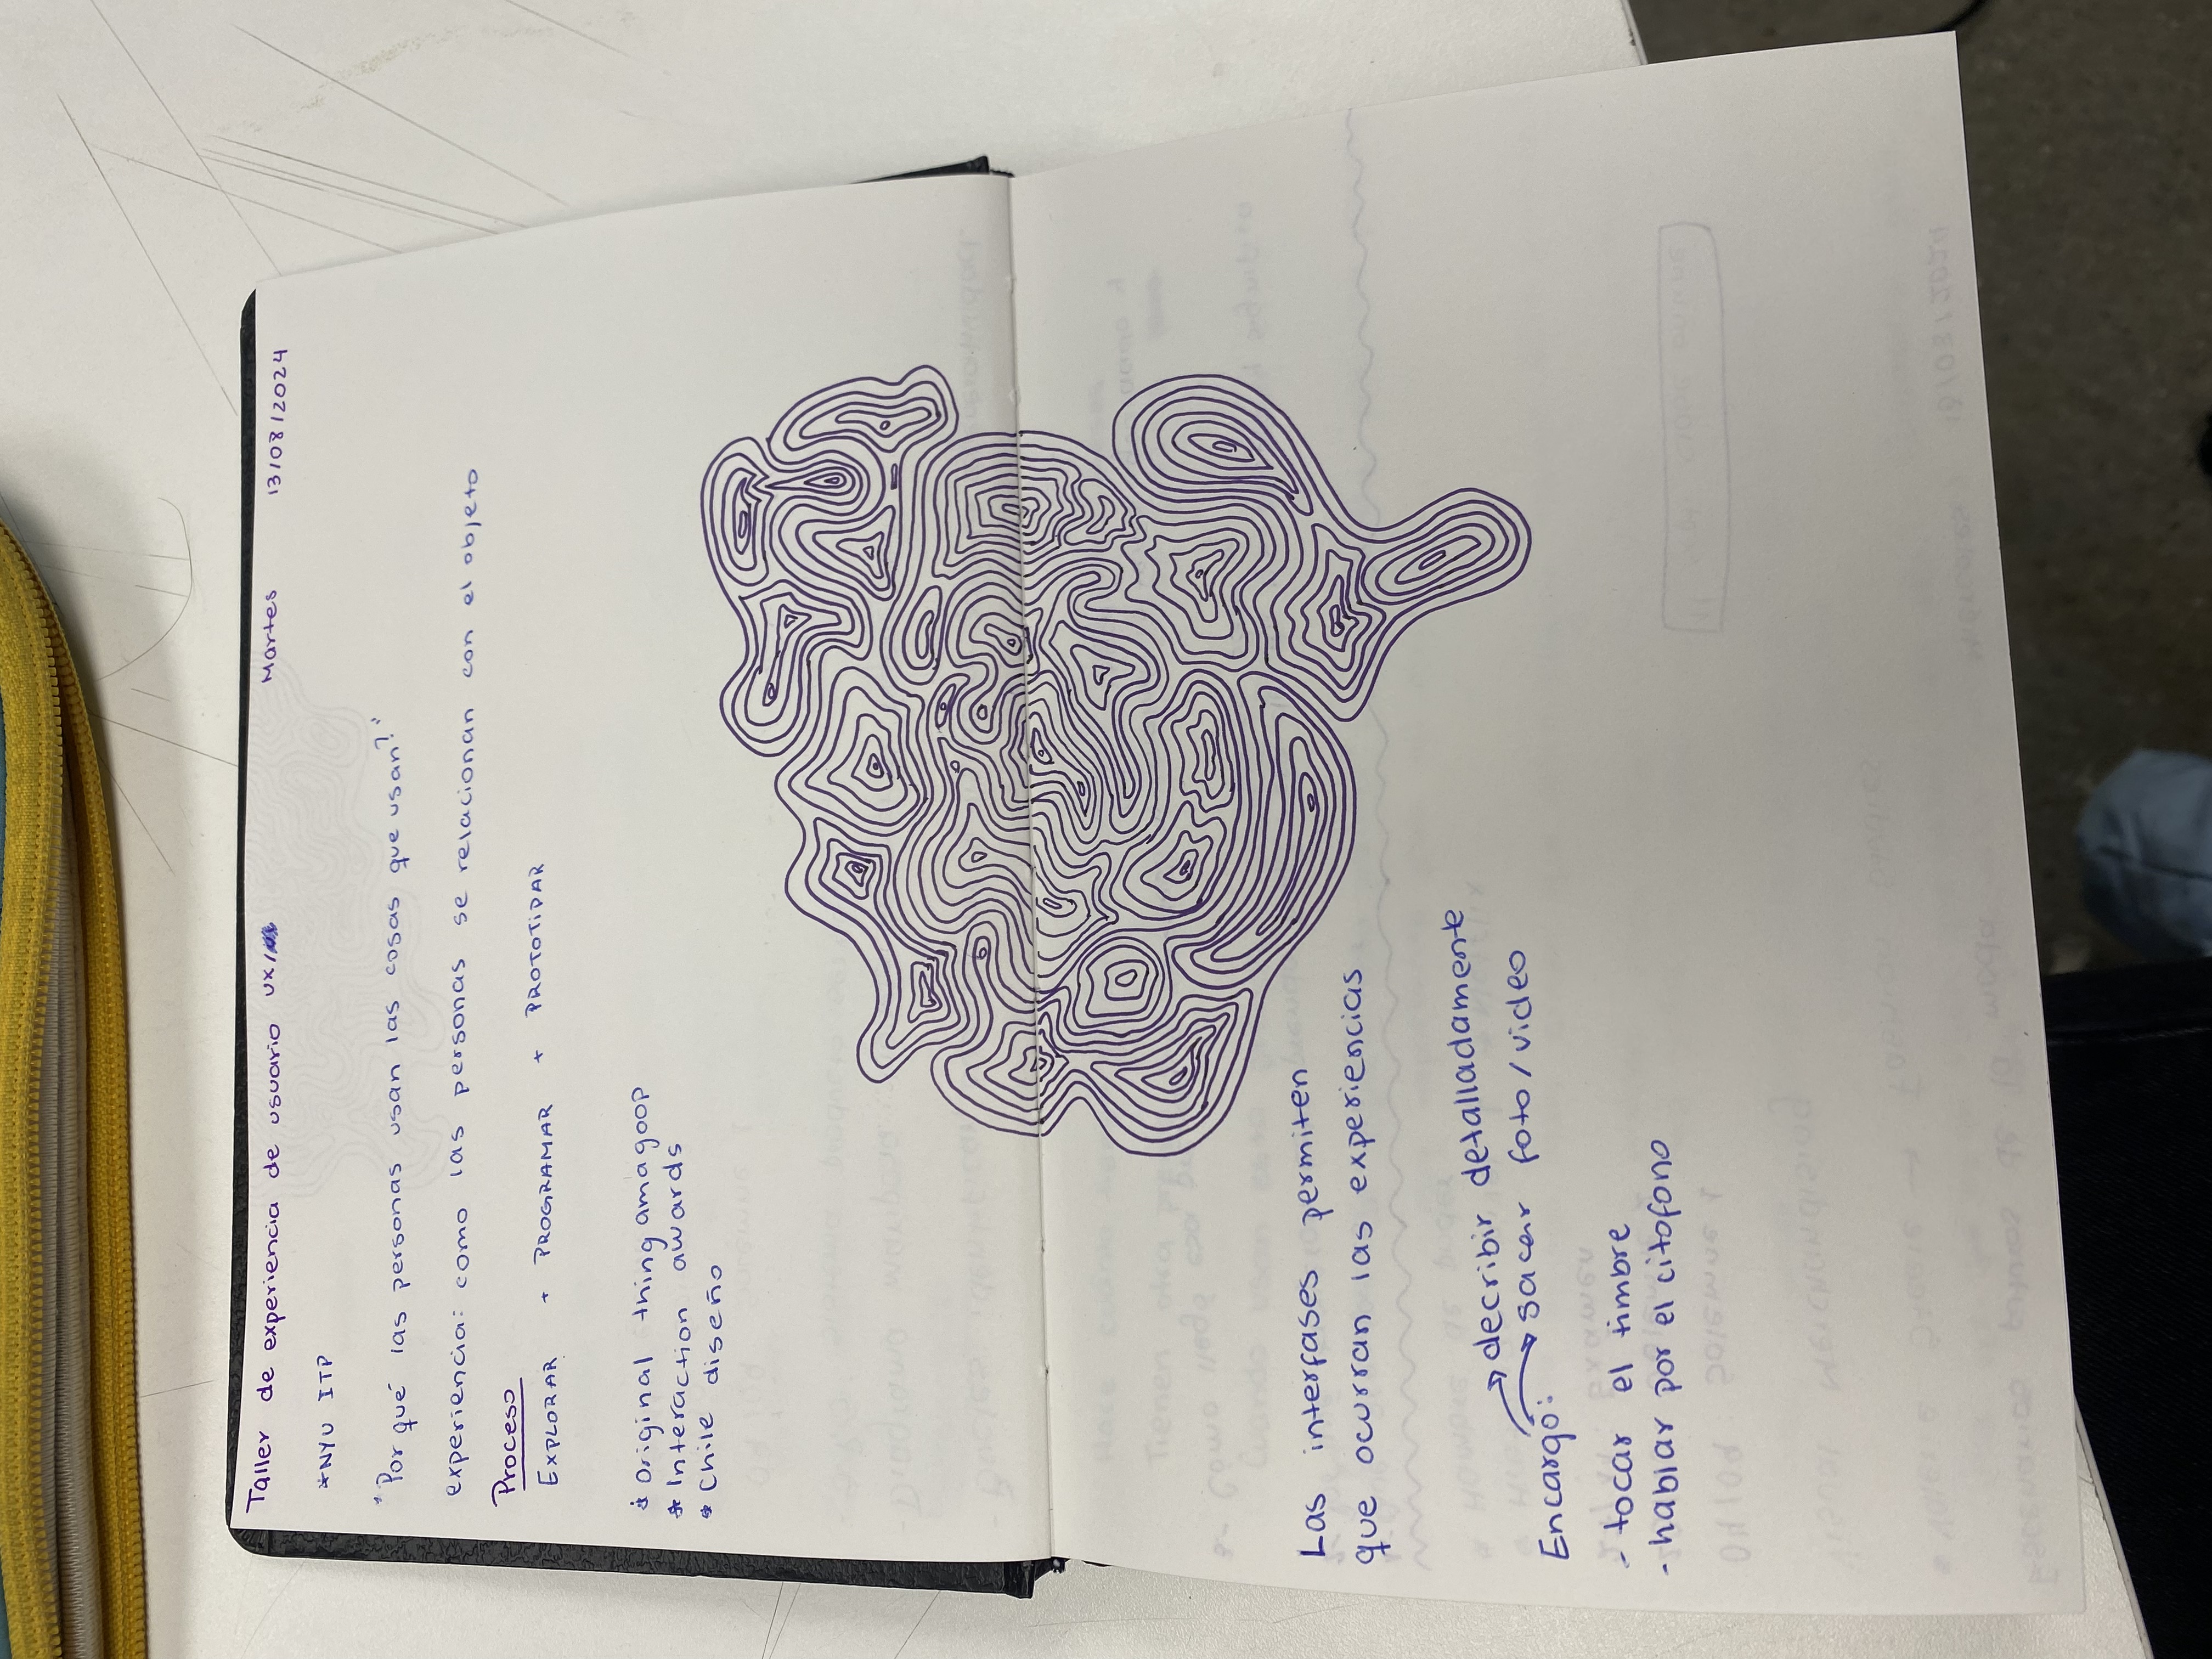 Taller de experiencia de usuario UX/ Martes 13/08/2024
*NYU ITP
"Por qué las personas usan las cosas que usan?"
experiencia: como las personas se relacionan con el objeto
Proceso
EXPLORAR + PROGRAMAR + PROTOTIPAR
* Original thingamagoop
* Interaction awards
* Chile diseño
Las interfases permiten
que ocurran las experiencias
decribir detalladamente
sacar foto/video
Encargo:
- tocar el timbre
- hablar por el citofono